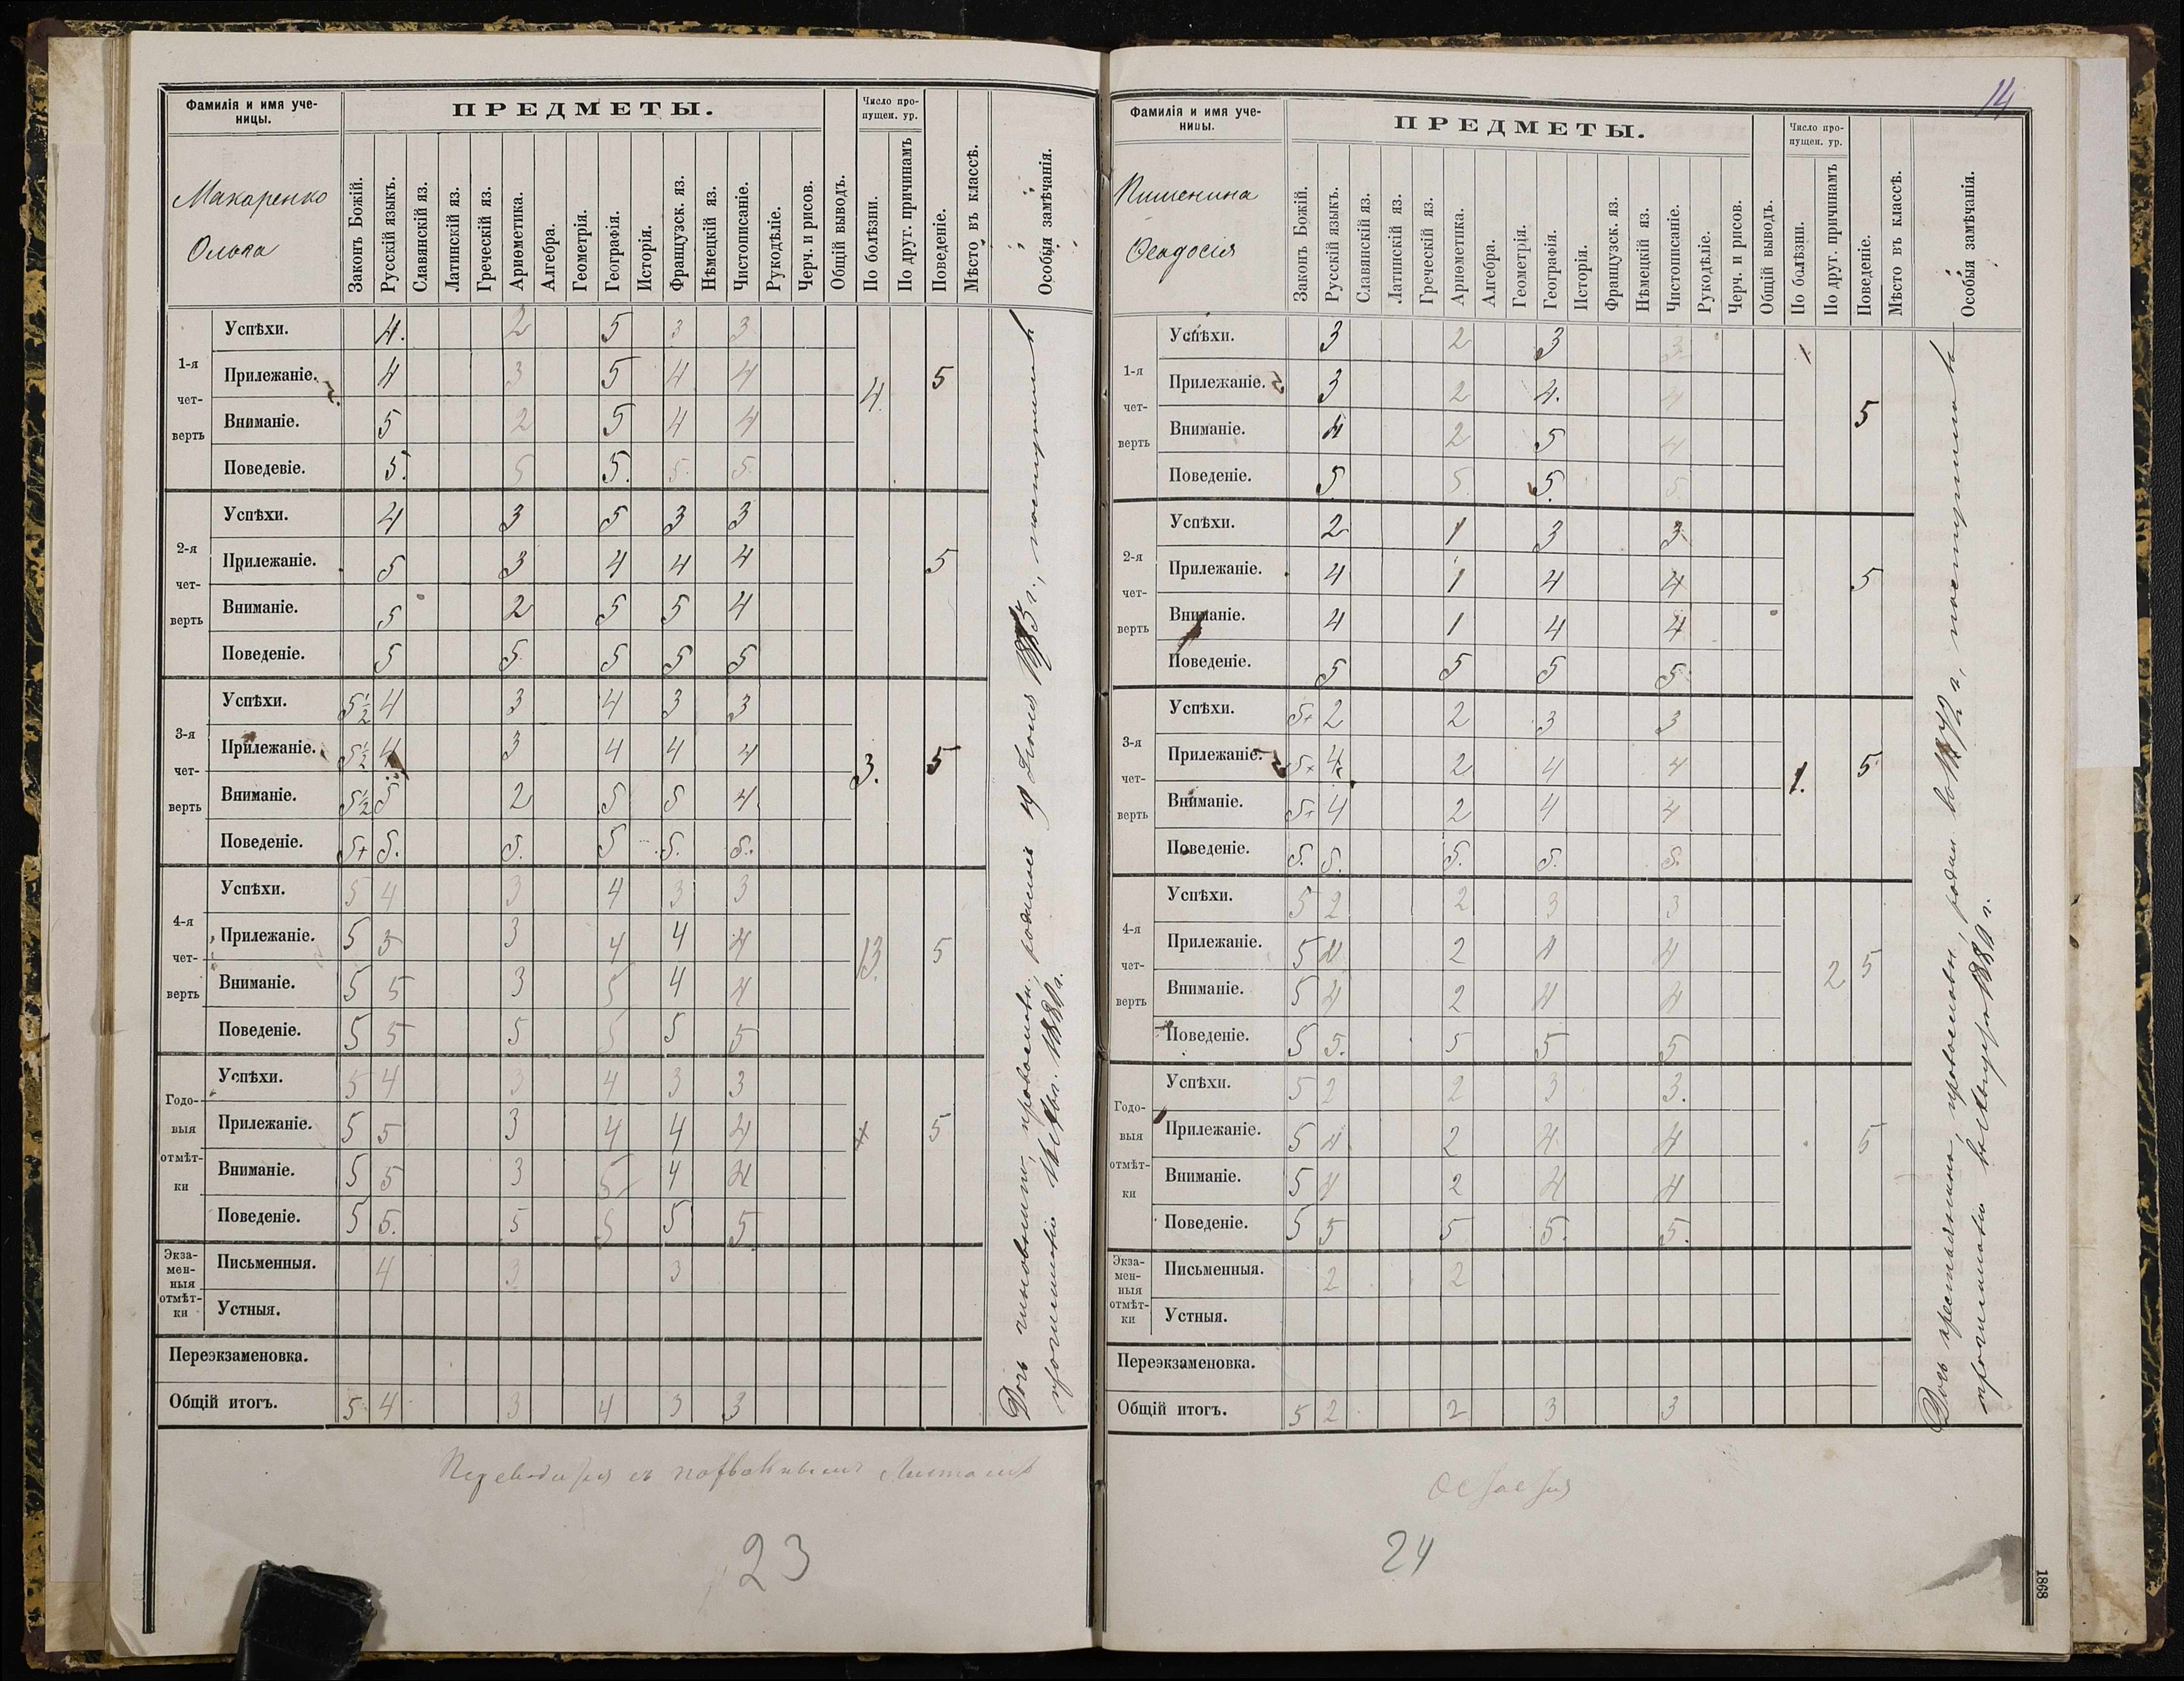 Фамилія и имя уче-
ницы.
Макаренко
Ольга
ПРЕДМЕТЫ.
Законъ Божій.
Русскій языкъ.
Славянскій яз.
Латинскій яз.
Греческій яз.
Ариѳметика.
Алгебра.
Геометрія.
Географія.
Исторія.
Французск. яз.
Нѣмецкій яз.
Чистописаніе.
Рукодѣліе.
Черч. и рисов.
Общій выводъ.
Число про-
пущен. ур.
По болѣзни.
По друг. причинамъ
Поведеніе.
Мѣсто въ классѣ.
Особыя замѣчанія.
1-я чет-верть
Успѣхи. 4. 2 5 3 3
Прилежаніе. 4 3 5 4 4 4 5
Вниманіе. 5 2 5 4 4
Поведевіе. 5. 5 5. 5. 5.
2-я чет-верть
Успѣхи. 4 3 5 3 3
Прилежаніе. 5 3 4 4 4 5
Вниманіе. 5 2 5 5 4
Поведеніе. 5 5. 5 5 5
3-я чет-верть
Успѣхи. 5½ 4 3 4 3 3
Прилежаніе. 5½ 4 3 4 4 4 3. 5
Вниманіе. 5½ 5 2 5 5 4
Поведеніе. 5+ 5. 5. 5 5. 5.
4-я чет-верть
Успѣхи. 5 4 3 4 3 3
Прилежаніе. 5 5 3 4 4 4 13. 5
Вниманіе. 5 5 3 5 4 4
Поведеніе. 5 5 5 5 5 5
Годо-выя отмѣт-ки
Успѣхи. 5 4 3 4 3 3
Прилежаніе. 5 5 3 4 4 4 5
Вниманіе. 5 5 3 5 4 4
Поведеніе. 5 5. 5 5 5 5
Экза-мен-ныя отмѣт-ки
Письменныя. 4 3 3
Устныя.
Переэкзаменовка.
Общій итогъ. 5 4 3 4 3 3
Дочь чиновника, православн., родилась 19 Іюля г., поступила въ
прогимназію 1880 г.
Переводится съ похвальнымъ листомъ
23
14
Фамилія и имя уче-
ницы.
Пишенина
Ѳеодосія
ПРЕДМЕТЫ.
Законъ Божій.
Русскій языкъ.
Славянскій яз.
Латинскій яз.
Греческій яз.
Ариѳметика.
Алгебра.
Геометрія.
Географія.
Исторія.
Французск. яз.
Нѣмецкій яз.
Чистописаніе.
Рукодѣліе.
Черч. и рисов.
Общій выводъ.
Число про-
пущен. ур.
По болѣзни.
По друг. причинамъ
Поведеніе.
Мѣсто въ классѣ.
Особыя замѣчанія.
1-я чет-верть
Успѣхи. 3 2 3 3 1
Прилежаніе. 3 2 4. 4
Вниманіе. 4 2 5 4 5
Поведеніе. 5 5. 5. 5.
2-я чет-верть
Успѣхи. 2 1 3 3
Прилежаніе. 4 1 4 4 5
Вниманіе. 4 1 4 4
Поведеніе. 5 5 5 5
3-я чет-верть
Успѣхи. 5+ 2 2 3 3
Прилежаніе. 5+ 4 2 4 4 1. 5
Вниманіе. 5+ 4 2 4 4
Поведеніе. 5. 5. 5. 5. 5.
4-я чет-верть
Успѣхи. 5 2 2 3 3
Прилежаніе. 5 4 2 4 4 2 5
Вниманіе. 5 4 2 4 4
Поведеніе. 5 5. 5 5 5
Годо-выя отмѣт-ки
Успѣхи. 5 2 2 3 3.
Прилежаніе. 5 4 2 4 4 5
Вниманіе. 5 4 2 4 4
Поведеніе. 5 5 5 5. 5.
Экза-мен-ныя отмѣт-ки
Письменныя. 2 2
Устныя.
Переэкзаменовка.
Общій итогъ. 5 2 2 3 3
Дочь крестьянина, православн., родил. г., поступила въ
прогимназію г.
Остается
24
1868